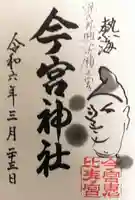 熱海
今宮神社
令和六年三月二十三日
今宮恵
比寿宮